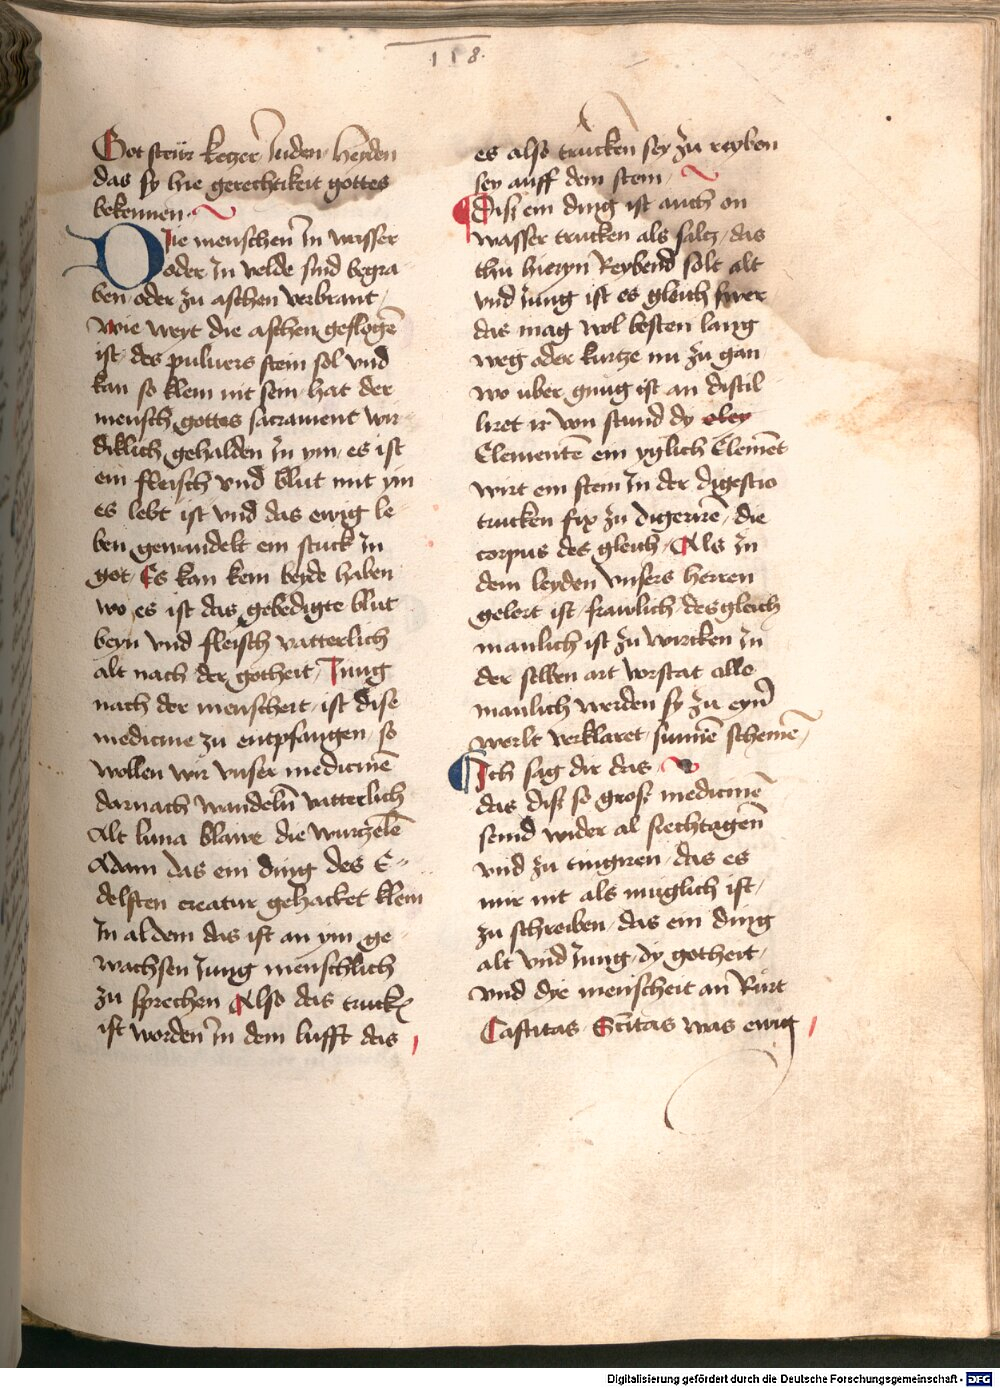 118.
Got steür ketzer Juden heyden
das sy hie gerechtikeit gottes
bekennen
Die menschen In wasser
oder In velde sind begra
ben oder zu aschen verbrant
wie weyt die aschen geflogē
ist des puluers stein sol vnd
kan so klein nit sein hat der
mensch gottes sacrament wir
diklich gehalden In ym es ist
ein fleisch vnd blut mit ym
es lebt ist vnd das ewig le
ben gewandelt ein stuck In
got Es kan kein beyde haben
wo es ist das gebedigte blut
beyn vnd fleisch vatterlich
alt nach der gotheit Jung
nach der menscheit ist dise
medicine zu entpfangen so
wollen wir vnser medicinē
darnach wandeln vatterlich
Alt luna blawe die wurtzelē
Adam das ein ding des E
delsten creatur gehacket klein
In al dem das ist an ym ge
wachsen Jung menschlich
zu sprechen Also das trucken
ist worden In dem lufft das
es also trucken sey zu reyben
sey auff dem stein
Disz ein ding ist auch on
wasser trucken als saltz das
thu hieryn Reybend solt alt
vnd Jung ist es gleich swer
das mag wol besten lang
weg oder kurtze nu zu gan
wo uber gnug ist an distil
liret ir von stund dy oley
Elementē ein yglich Elemēt
wirt ein stein In der digestio
trucken fix zu digerirē die
corpus des gleich Als In
dem leyden vnsers herren
gelert ist frawlich desgleich
manlich ist zu wircken In
der selben art vorstat alle
manlich werden sy zu eyner
werlt verklaret sunnē scheinē
Ich sag dir das
das disz so grosz medicinē
seind wider al siechtagen
vnd zu tingiren das es
mir nit als müglich ist
zu schreiben das ein ding
alt vnd Jung dy gotheit
vnd dye menscheit an Rürt
Castitas Sctitas was ewig
Digitalisierung gefördert durch die Deutsche Forschungsgemeinschaft - DFG